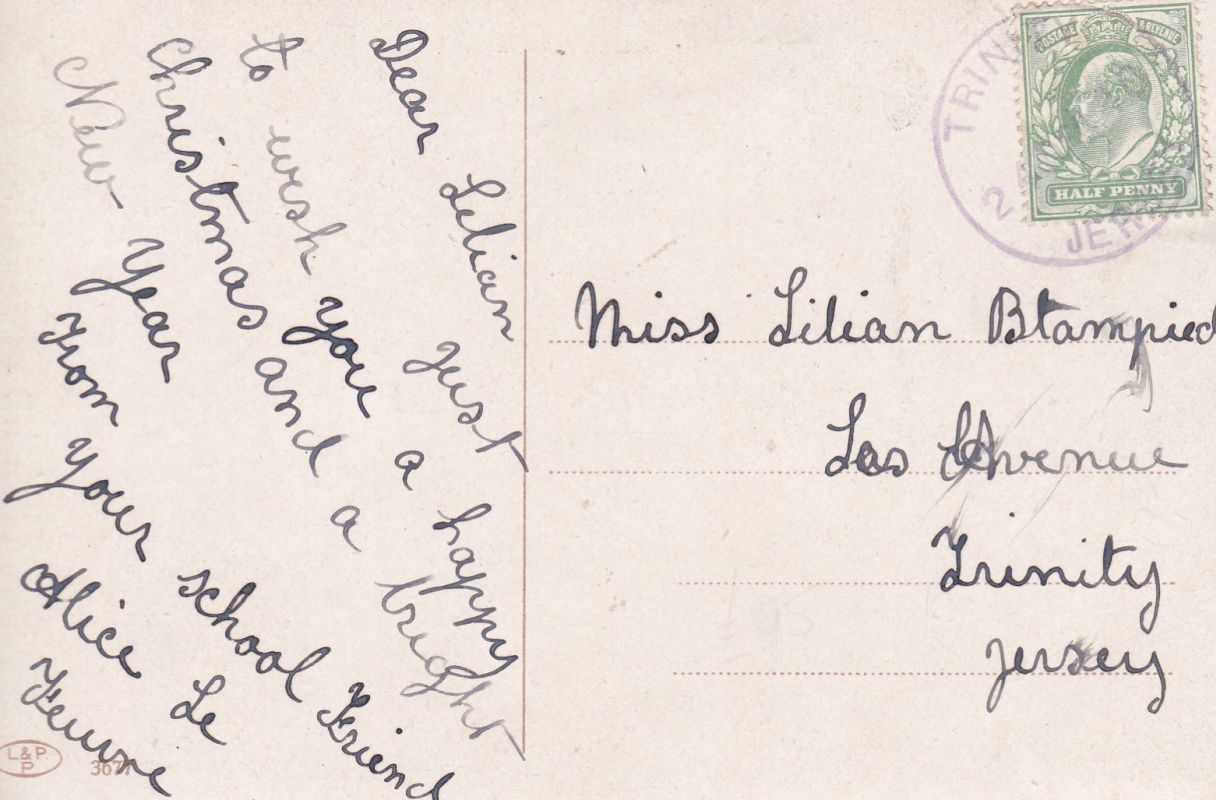 Dear Lilian just
to wish you a happy
Christmas and a bright
New Year
From your school Friend
Alice Le
Feuvre
L & P.
P
367
TRINITY
2
JERSEY
POSTAGE & REVENUE
HALF PENNY
Miss Lilian Blampied
Las Avenue
Trinity
Jersey